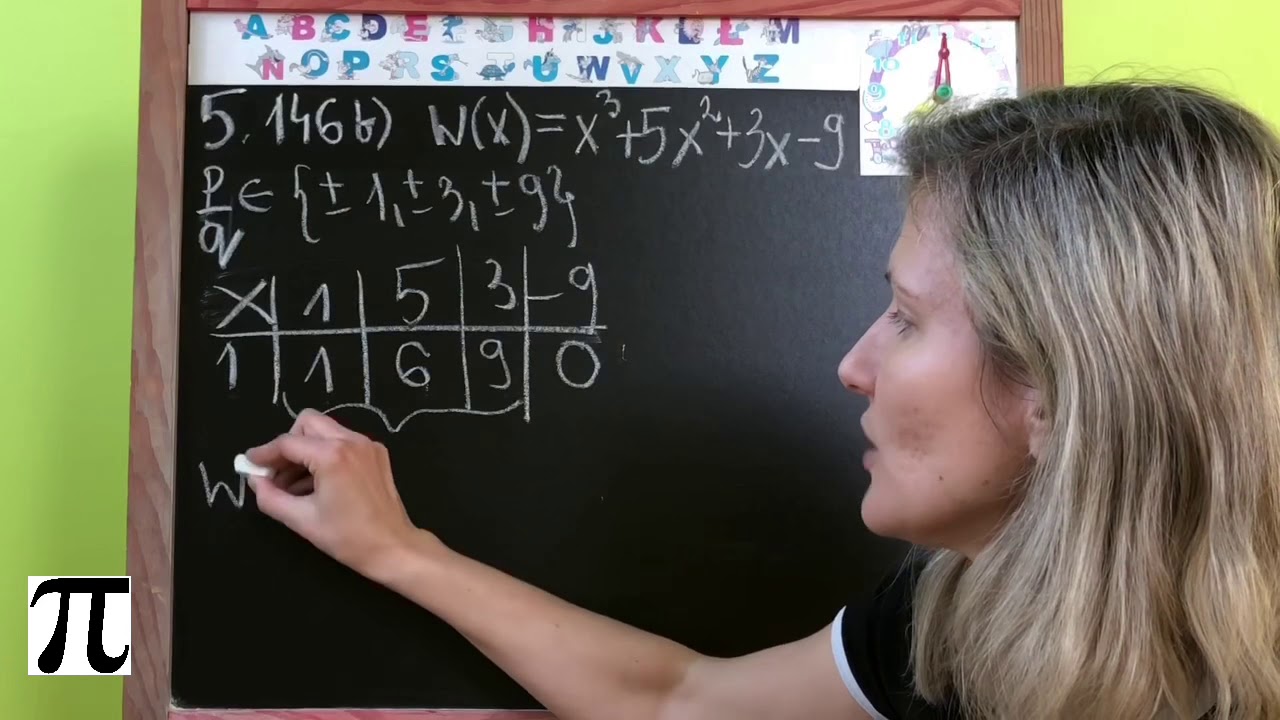 A B C D E F G H I J K L Ł M
N O P R S T U W V X Y Z
5.146 b) W(x)=x³+5x²+3x-9
p/q ∈ {±1, ±3, ±9}
x | 1 | 5 | 3 | -9
1 | 1 | 6 | 9 | 0
W
π